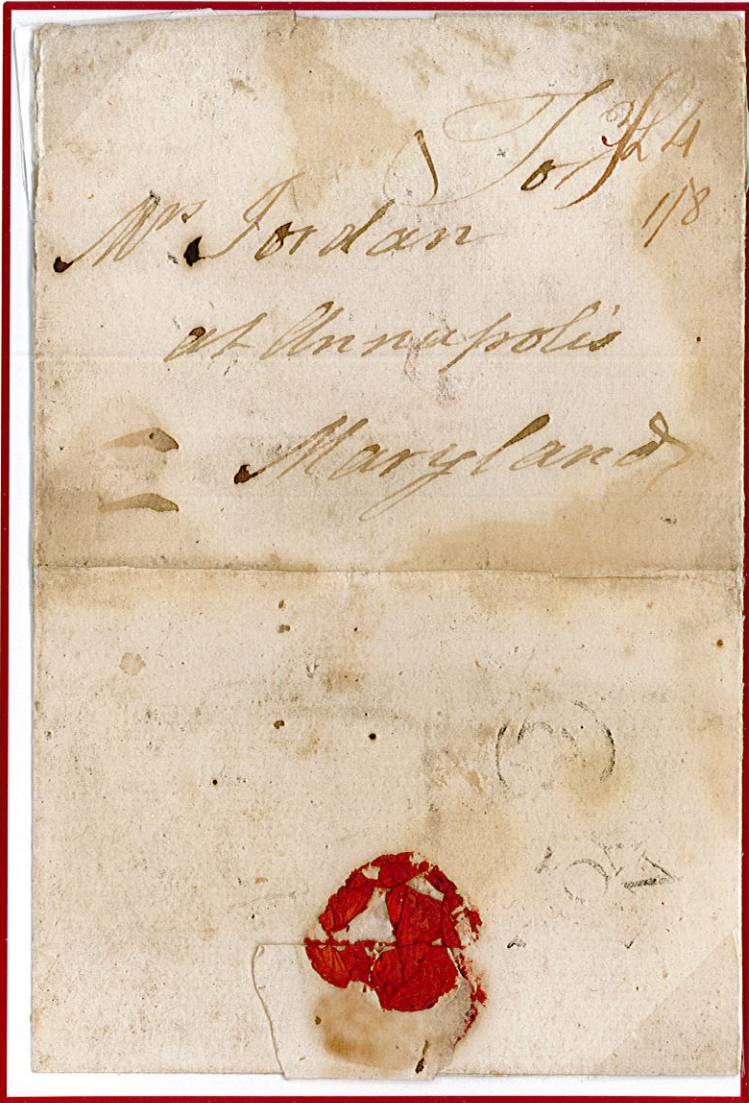 To
4
1/8
Mrs. Jordan
at Annapolis
Maryland